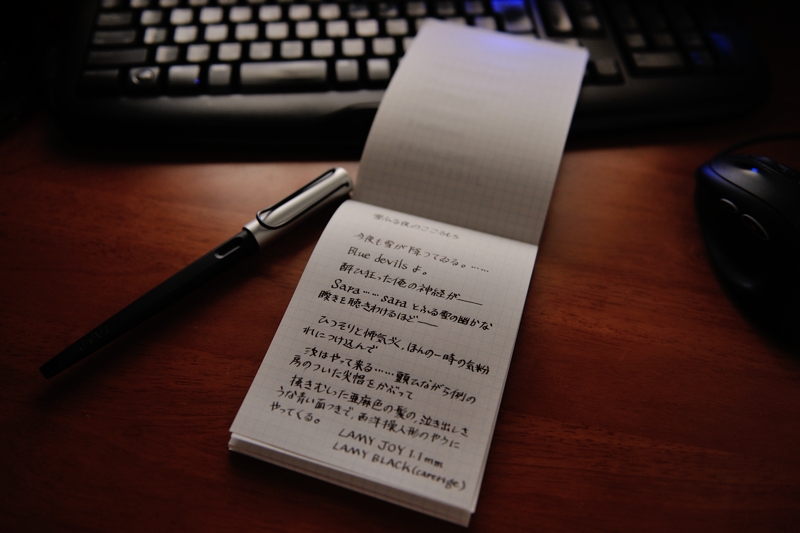 雪ふる夜のこころもち
今夜も雪が降つてゐる。……
Blue devils よ。
酔ひ狂つた俺の神経が——
Sara……sara とふる雪の幽かな
瞬きを聴きわけるほど——
ひつそりと怖気づく、ほんの一時の気紛
れにつけ込んで
汝はやつて来る……顫ひながら例の
房のついた尖帽をかぶつて
掻きむしつた亜麻色の髪の、泣き出しさ
うな青い面つきで、西洋操人形のやうに
やつてくる。
LAMY JOY 1.1mm
LAMY BLACK(carterige)